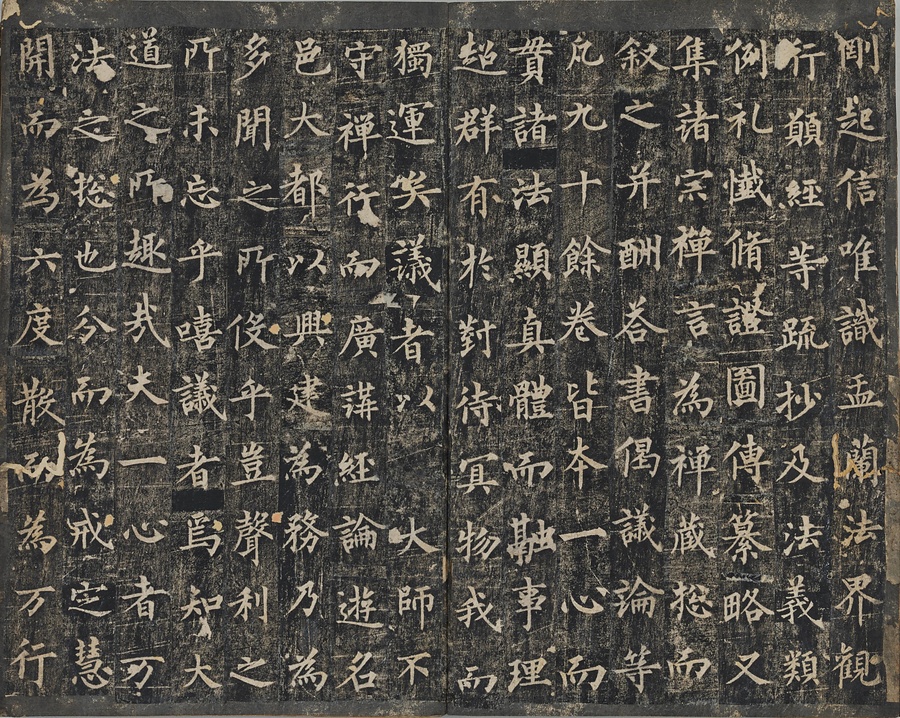 剛起信唯識盂蘭法界觀
行願經等疏抄及法義類
例礼懴脩證圖傳纂略又
集諸宗禪言為禪蔵捴而
叙之并酬荅書偈議論等
凡九十餘卷皆本一心而
貫諸法顯真體而融事理
超群有於對待冥物我而
獨運矣議者以大師不
守禪行而廣講經論遊名
邑大都以興建為務乃為
多聞之所役乎豈聲利之
所未忘乎嘻議者焉知大
道之所趣哉夫一心者万
法之捴也分而為戒定慧
開而為六度散而為万行